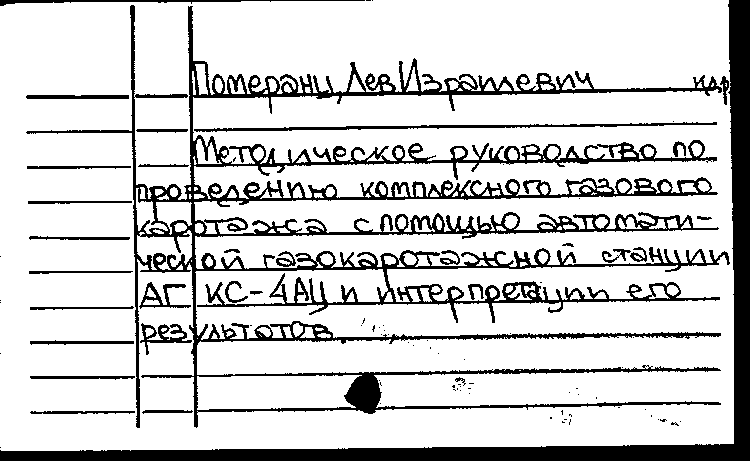 Померанц, Лев Израилевич и др
Методическое руководство по
проведению комплексного газового
каротажа с помощью автомати-
ческой газокаротажной станции
АГ КС-4АЦ и интерпретации его
результатов.